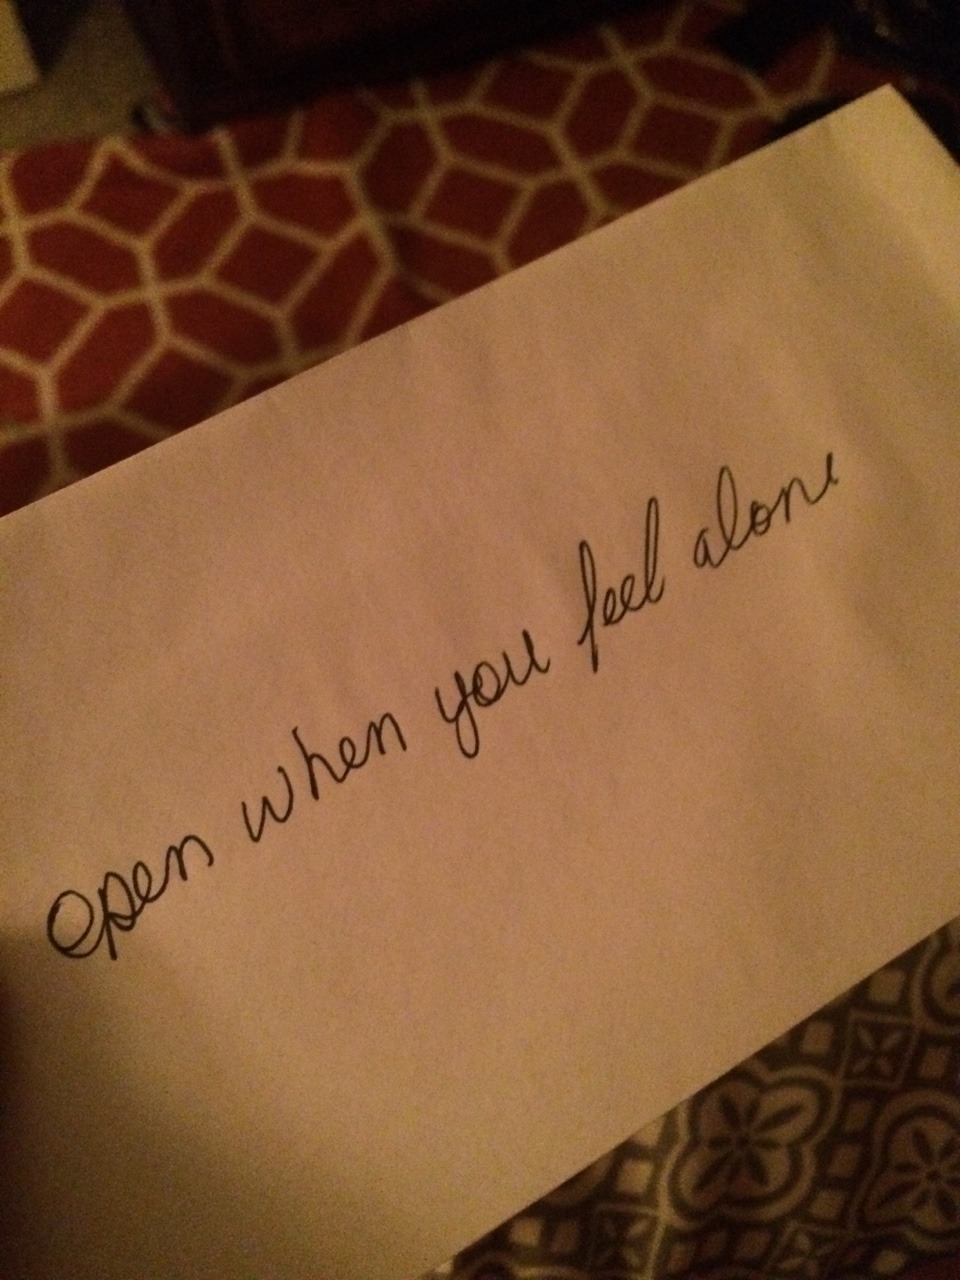 open when you feel alone